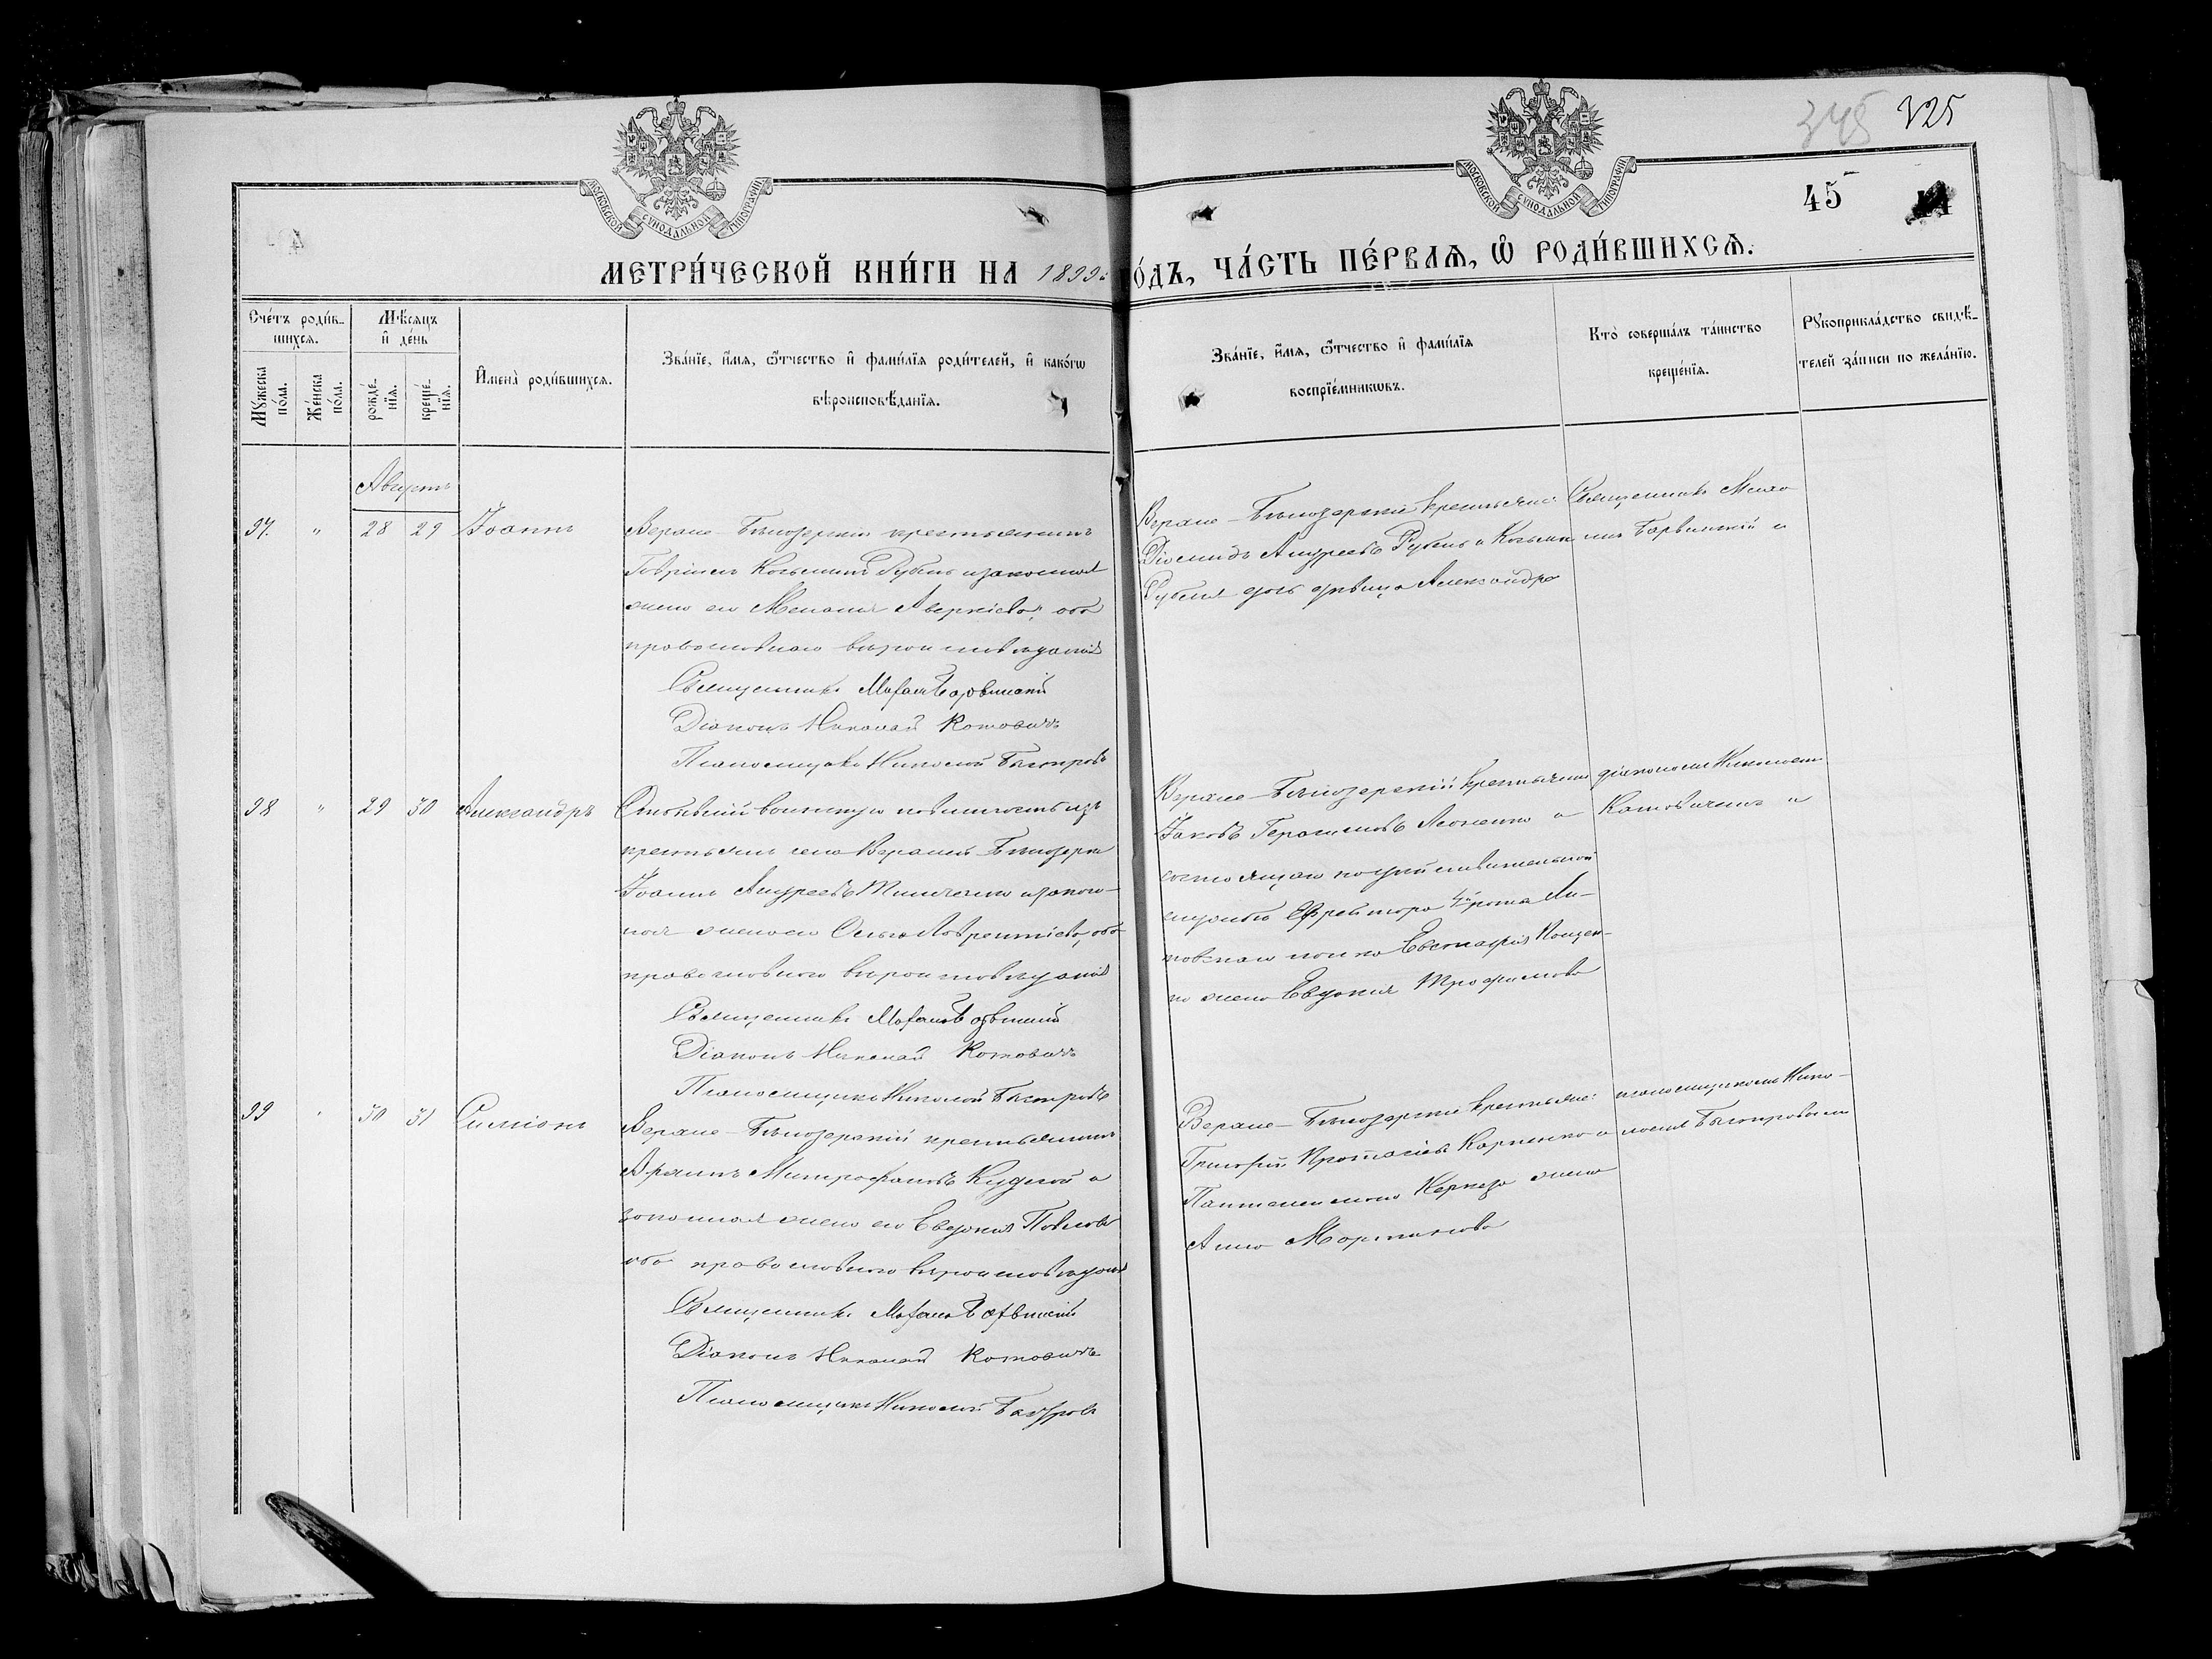 345 325
45
МОСКОВСКОЙ СѴНОДАЛЬНОЙ ТИПОГРАФІИ
МОСКОВСКОЙ СѴНОДАЛЬНОЙ ТИПОГРАФІИ
МЕТРИ́ЧЕСКОЙ КНИ́ГИ НА 1899 ГО́ДЪ, ЧА́СТЬ ПЕ́РВАѦ, Ѿ РОДИ́ВШИХСѦ.
Сче́тъ роди́в-
шихсѧ.
Му́жеска по́ла.
Же́нска по́ла.
Мѣ́сѧцъ
и҆ де́нь
рожде́-
нїѧ.
креще́-
нїѧ.
И҆мена̀ роди́вшихсѧ.
Зва́нїе, и҆́мѧ, ѻ҆́тчество и҆ фами́лїѧ роди́телей, и҆ како́гѡ
вѣроисповѣ́данїѧ.
Зва́нїе, и҆́мѧ, ѻ҆́тчество и҆ фами́лїѧ
воспрїе́мникѡвъ.
Кто̀ соверша́лъ та́инство
креще́нїѧ.
Рꙋкоприкла́дство свидѣ́-
телей за́писи по жела́нїю.
Августъ
97. " 28 29 Іоаннъ
Верхне-Бѣлозерскій крестьянинъ
Гавріилъ Козьминъ Рубель и законная
жена его Меланія Аверкіева, оба
православнаго вѣроисповѣданія
Священникъ Михаилъ Барвинскій
Діаконъ Николай Котовичъ
Псаломщикъ Николай Быстровъ
Верхне-Бѣлозерскіе крестьяне:
Діомидъ Андреевъ Рубель и Козьмы
Рубеля дочь дѣвица Александра
Священникъ Миха-
илъ Барвинскій и
98 " 29 30 Александръ
Отбывшій воинскую повинность изъ
крестьянъ села Верхней-Бѣлозерки
Іоаннъ Андреевъ и закон-
ная жена его Ольга Лаврентіева, оба
православнаго вѣроисповѣданія
Священникъ Михаилъ Барвинскій
Діаконъ Николай Котовичъ
Псаломщикъ Николай Быстровъ
Верхне-Бѣлозерскій крестьянинъ
Іаковъ Герасимовъ и
состоящаго на дѣйствительной
службѣ Ефрейтора роты Ли-
товскаго полка Евстафія
жена Евдокія Трофимова
діакономъ Николаемъ
Котовичемъ и
99 " 30 31 Симеонъ
Верхне-Бѣлозерскій крестьянинъ
Митрофановъ Куцкой и
законная жена его Евдокія Павлова
оба православнаго вѣроисповѣданія
Священникъ Михаилъ Барвинскій
Діаконъ Николай Котовичъ
Псаломщикъ Николай Быстровъ
Верхне-Бѣлозерскіе крестьяне:
Григорій Протасіевъ Карпенко и
Пантелеимона жена
Анна Мартинова
псаломщикомъ Нико-
лаемъ Быстровымъ